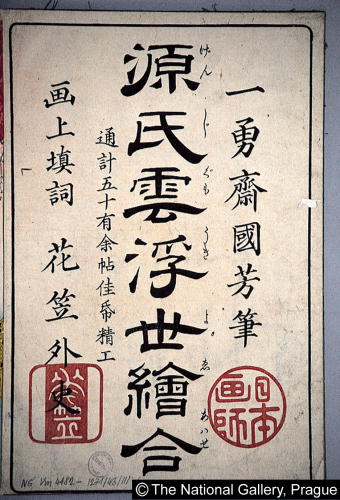 一勇齋國芳筆
源氏雲浮世繪合
げんじぐもうきよゑあはせ
通計五十有余帖佳帋精工
画上填詞 花笠外史
日本画師
NG Vm 4182 - 1271/43/111
© The National Gallery, Prague